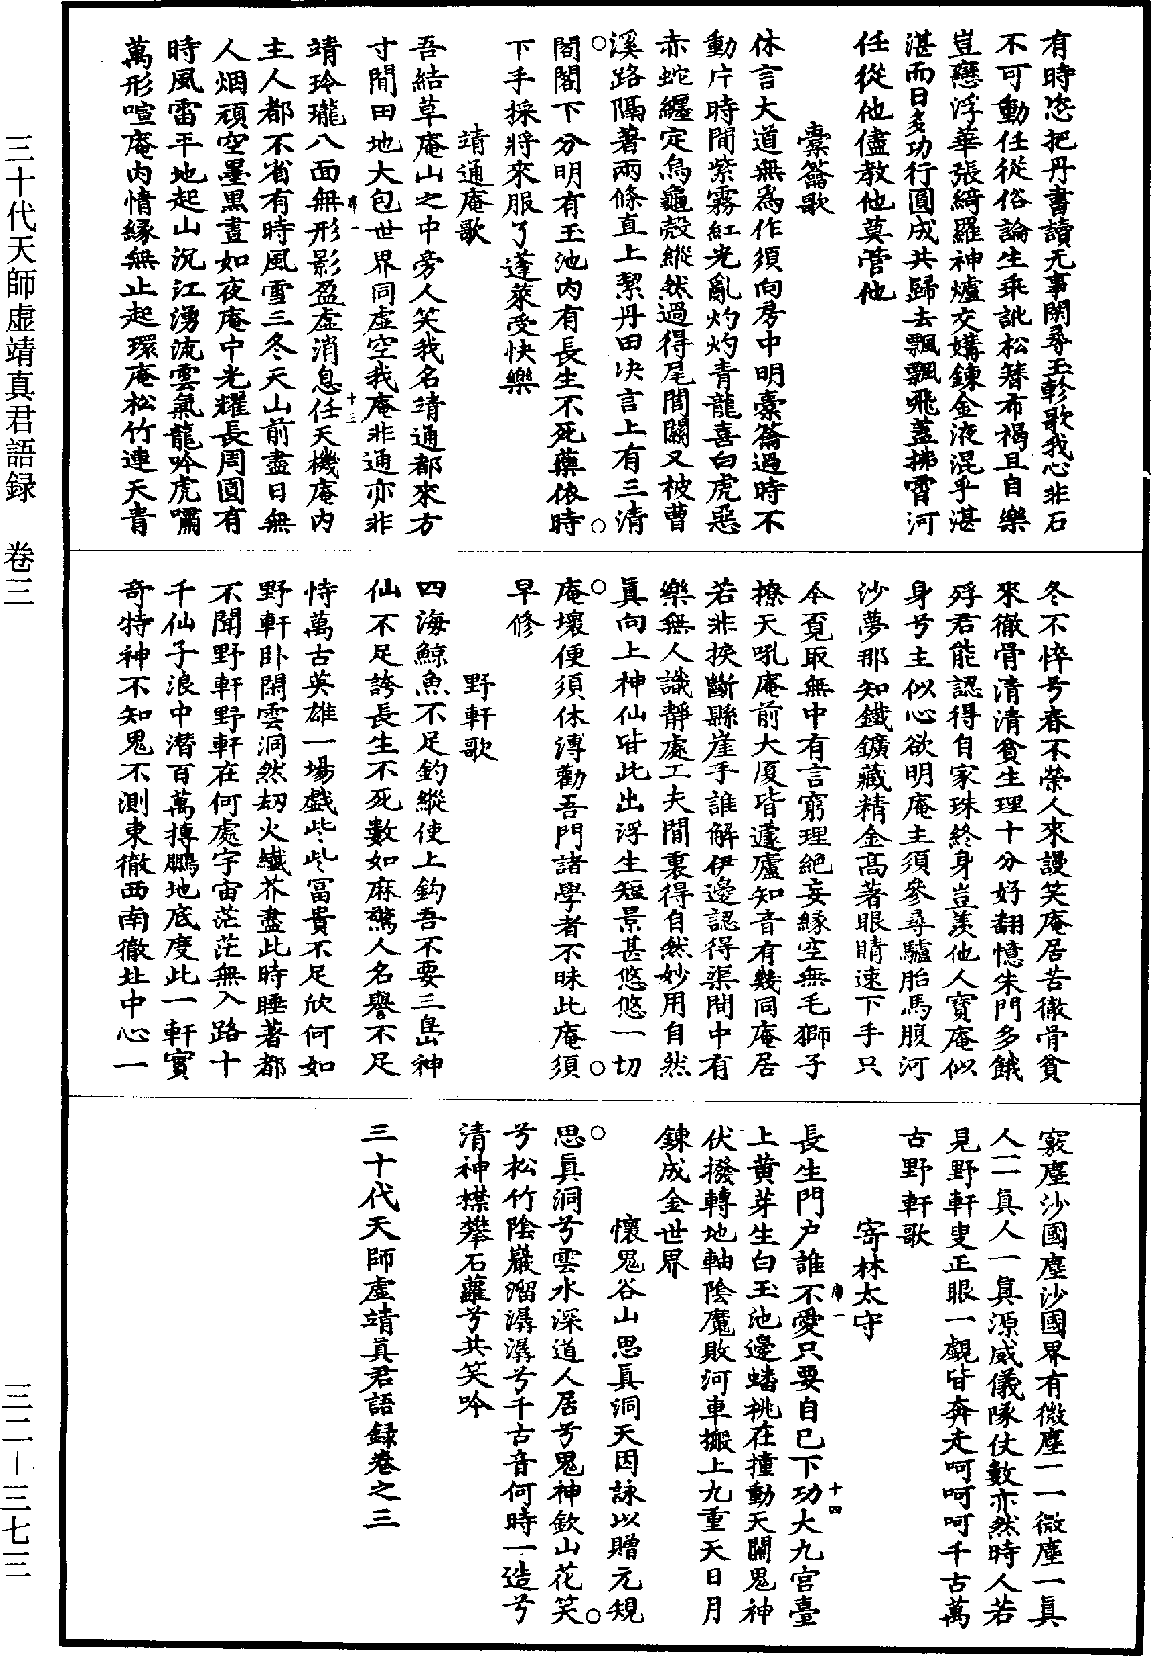 有時恣把丹書讀无事閑尋玉軫歌我心非石
不可動任從俗論生乖訛松簪布褐且自樂
豈戀浮華張綺羅神爐交媾鍊金液混乎湛
湛而日多功行圓成共歸去飄飄飛蓋拂霄河
任從他儘教他莫管他
橐籥歌
休言大道無爲作須向房中明橐籥過時不
動片時間紫霧紅光亂灼灼青龍喜白虎惡
赤蛇纏定烏龜殼縱然過得尾閭關又被曹
溪路隔著兩條直上絜丹田决言上有三清
閣閣下分明有玉池内有長生不死藥依時
下手採將來服了蓬萊受快樂
靖通庵歌
吾結草庵山之中旁人笑我名靖通都來方
寸間田地大包世界同虚空我庵非通亦非
靖玲瓏八面無形影盈虚消息任天機庵内
主人都不省有時風雪三冬天山前盡日無
人烟頑空墨黑晝如夜庵中光耀長周圓有
時風雷平地起山沉江湧流雲氣龍吟虎嘯
萬形喧庵内情緣無止起環庵松竹連天青
冬不悴兮春不榮人來謾笑庵居苦徹骨貧
來徹骨清清貧生理十分好翻憶朱門多餓
殍君能認得自家珠終身豈羨他人寶庵似
身兮主似心欲明庵主須參尋驢胎馬腹河
沙夢那知鐵鑛藏精金高著眼睛速下手只
今覓取無中有言窮理絕妄緣空無毛獅子
撩天吼庵前大廈皆蘧廬知音有幾同庵居
若非挨斷縣崖手誰解伊邊認得渠閒中有
樂無人識靜處工夫閒裏得自然妙用自然
真向上神仙皆此出浮生短景甚悠悠一切
庵壞便須休溥勸吾門諸學者不昧此庵須
早修
野軒歌
四海鯨魚不足釣縱使上鈎吾不要三島神
仙不足誇長生不死數如麻驚人名譽不足
恃萬古英雄一場戲些些冨貴不足欣何如
野軒卧閑雲洞然刼火纖芥盡此時睡著都
不聞野軒野軒在何處宇宙茫茫無入路十
千仙子浪中潜百萬摶鵬地底度此一軒實
奇特神不知鬼不測東徹西南徹北中心一
竅塵沙國塵沙國界有微塵一一微塵一真
人一一真人一真源威儀隊仗數亦然時人若
見野軒叟正眼一覷皆奔走呵呵呵千古萬
古野軒歌
寄林太守
長生門户誰不愛只要自已下功大九宫臺
上黄芽生白玉池邊蟠桃在撞動天關鬼神
伏撥轉地軸陰魔敗河車搬上九重天日月
鍊成金世界
懷鬼谷山思真洞天因詠以贈元規
思真洞兮雲水深道人居兮鬼神欽山花笑
兮松竹陰巖溜潺潺兮千古音何時一造兮
清神襟攀石蘿兮共笑吟
三十代天師虚靖真君語録卷之三
三十代天師虚靖真君語録　卷三
三二—三七三
席一
十三
席一
十四